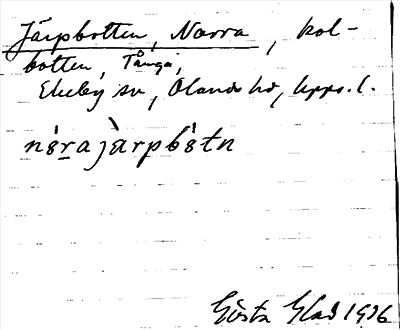 Järpbotten, Norra, kol-
botten, Tånga,
Ekeby sn, Ölands hd, Upps. l.
nòrajàrpbòtn
Gösta Glad 1936